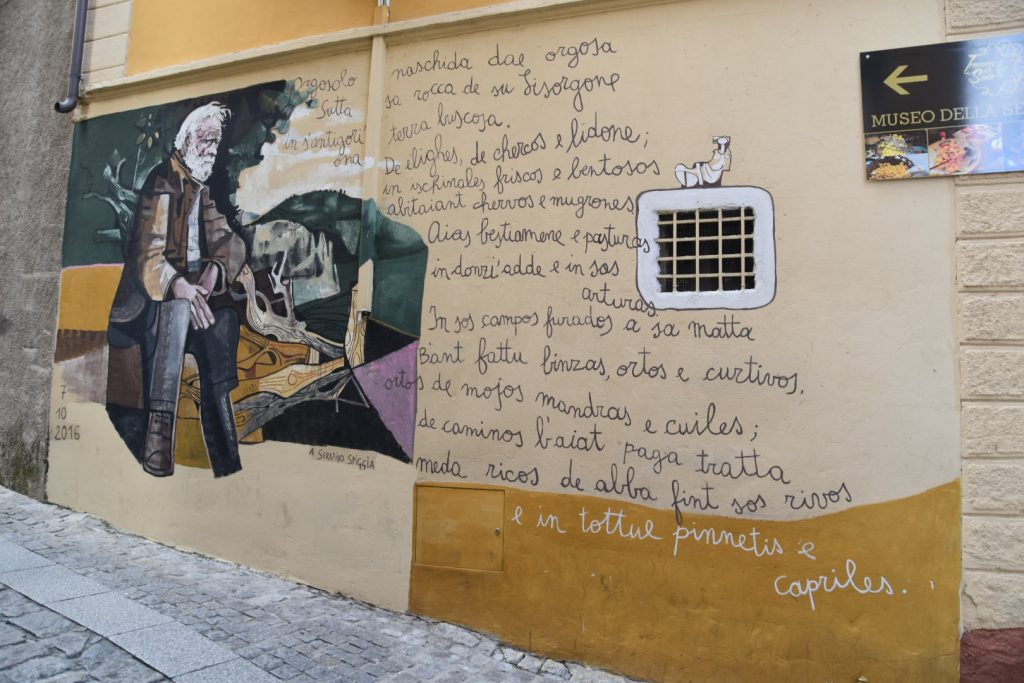 Orgosolo
Sutta
in s'antigori
ona
naschida dae orgosa
sa rocca de su Lisorgone
terra buscosa.
De élighes, de chercos e lidone;
in ischinales friscos e bentosos
abitaiant chervos e mugrones,
Aias bestiamene e pasturas
in donzi'adde e in sas
arturas.
In sos campos furados a sa matta
Bant fattu binzas, ortos e curtivos,
ortos de mojos mandras e cuiles;
de caminos b'aiat paga tratta
meda ricos de abba fint sos rivos
e in tottue pinnetis e
capriles.
7
10
2016
A SERAFINO SPIGGIA
MUSEO DELLA